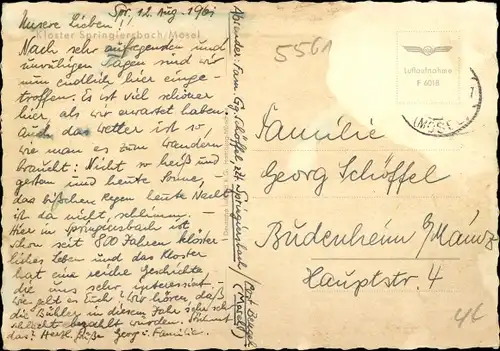 Spr, 12. Aug. 1961
Unsere Lieben!
Kloster Springiersbach/Mosel
Nach sehr aufregenden und
unruhigen Tagen sind wir
nun endlich hier einge-
troffen. Es ist viel schöner
hier, als wir erwartet haben,
auch das Wetter ist so,
wie man es zum Wandern
braucht: Nicht so heiß und
gestern und heute Sonne,
das bißchen Regen heute Nacht
ist da nicht schlimm. –
Hier in Springiersbach ist
schon seit 800 Jahren klöster-
liches Leben und das Kloster
hat eine reiche Geschichte,
die uns sehr interessiert.
Wie geht es Euch? Wir hören, daß
die Bühler in diesem Jahr sehr
schlecht bezahlt wurden. Stimmt
das? Herzl. Grüße Georg u. Familie.
Absender: Fam. Gg. Schöffel, zt. Springiersbach/
(Mosel)
5561
Luftaufnahme
F 6018
(MOSEL)
Familie
Georg Schöffel
Budenheim b/Mainz
Hauptstr. 4